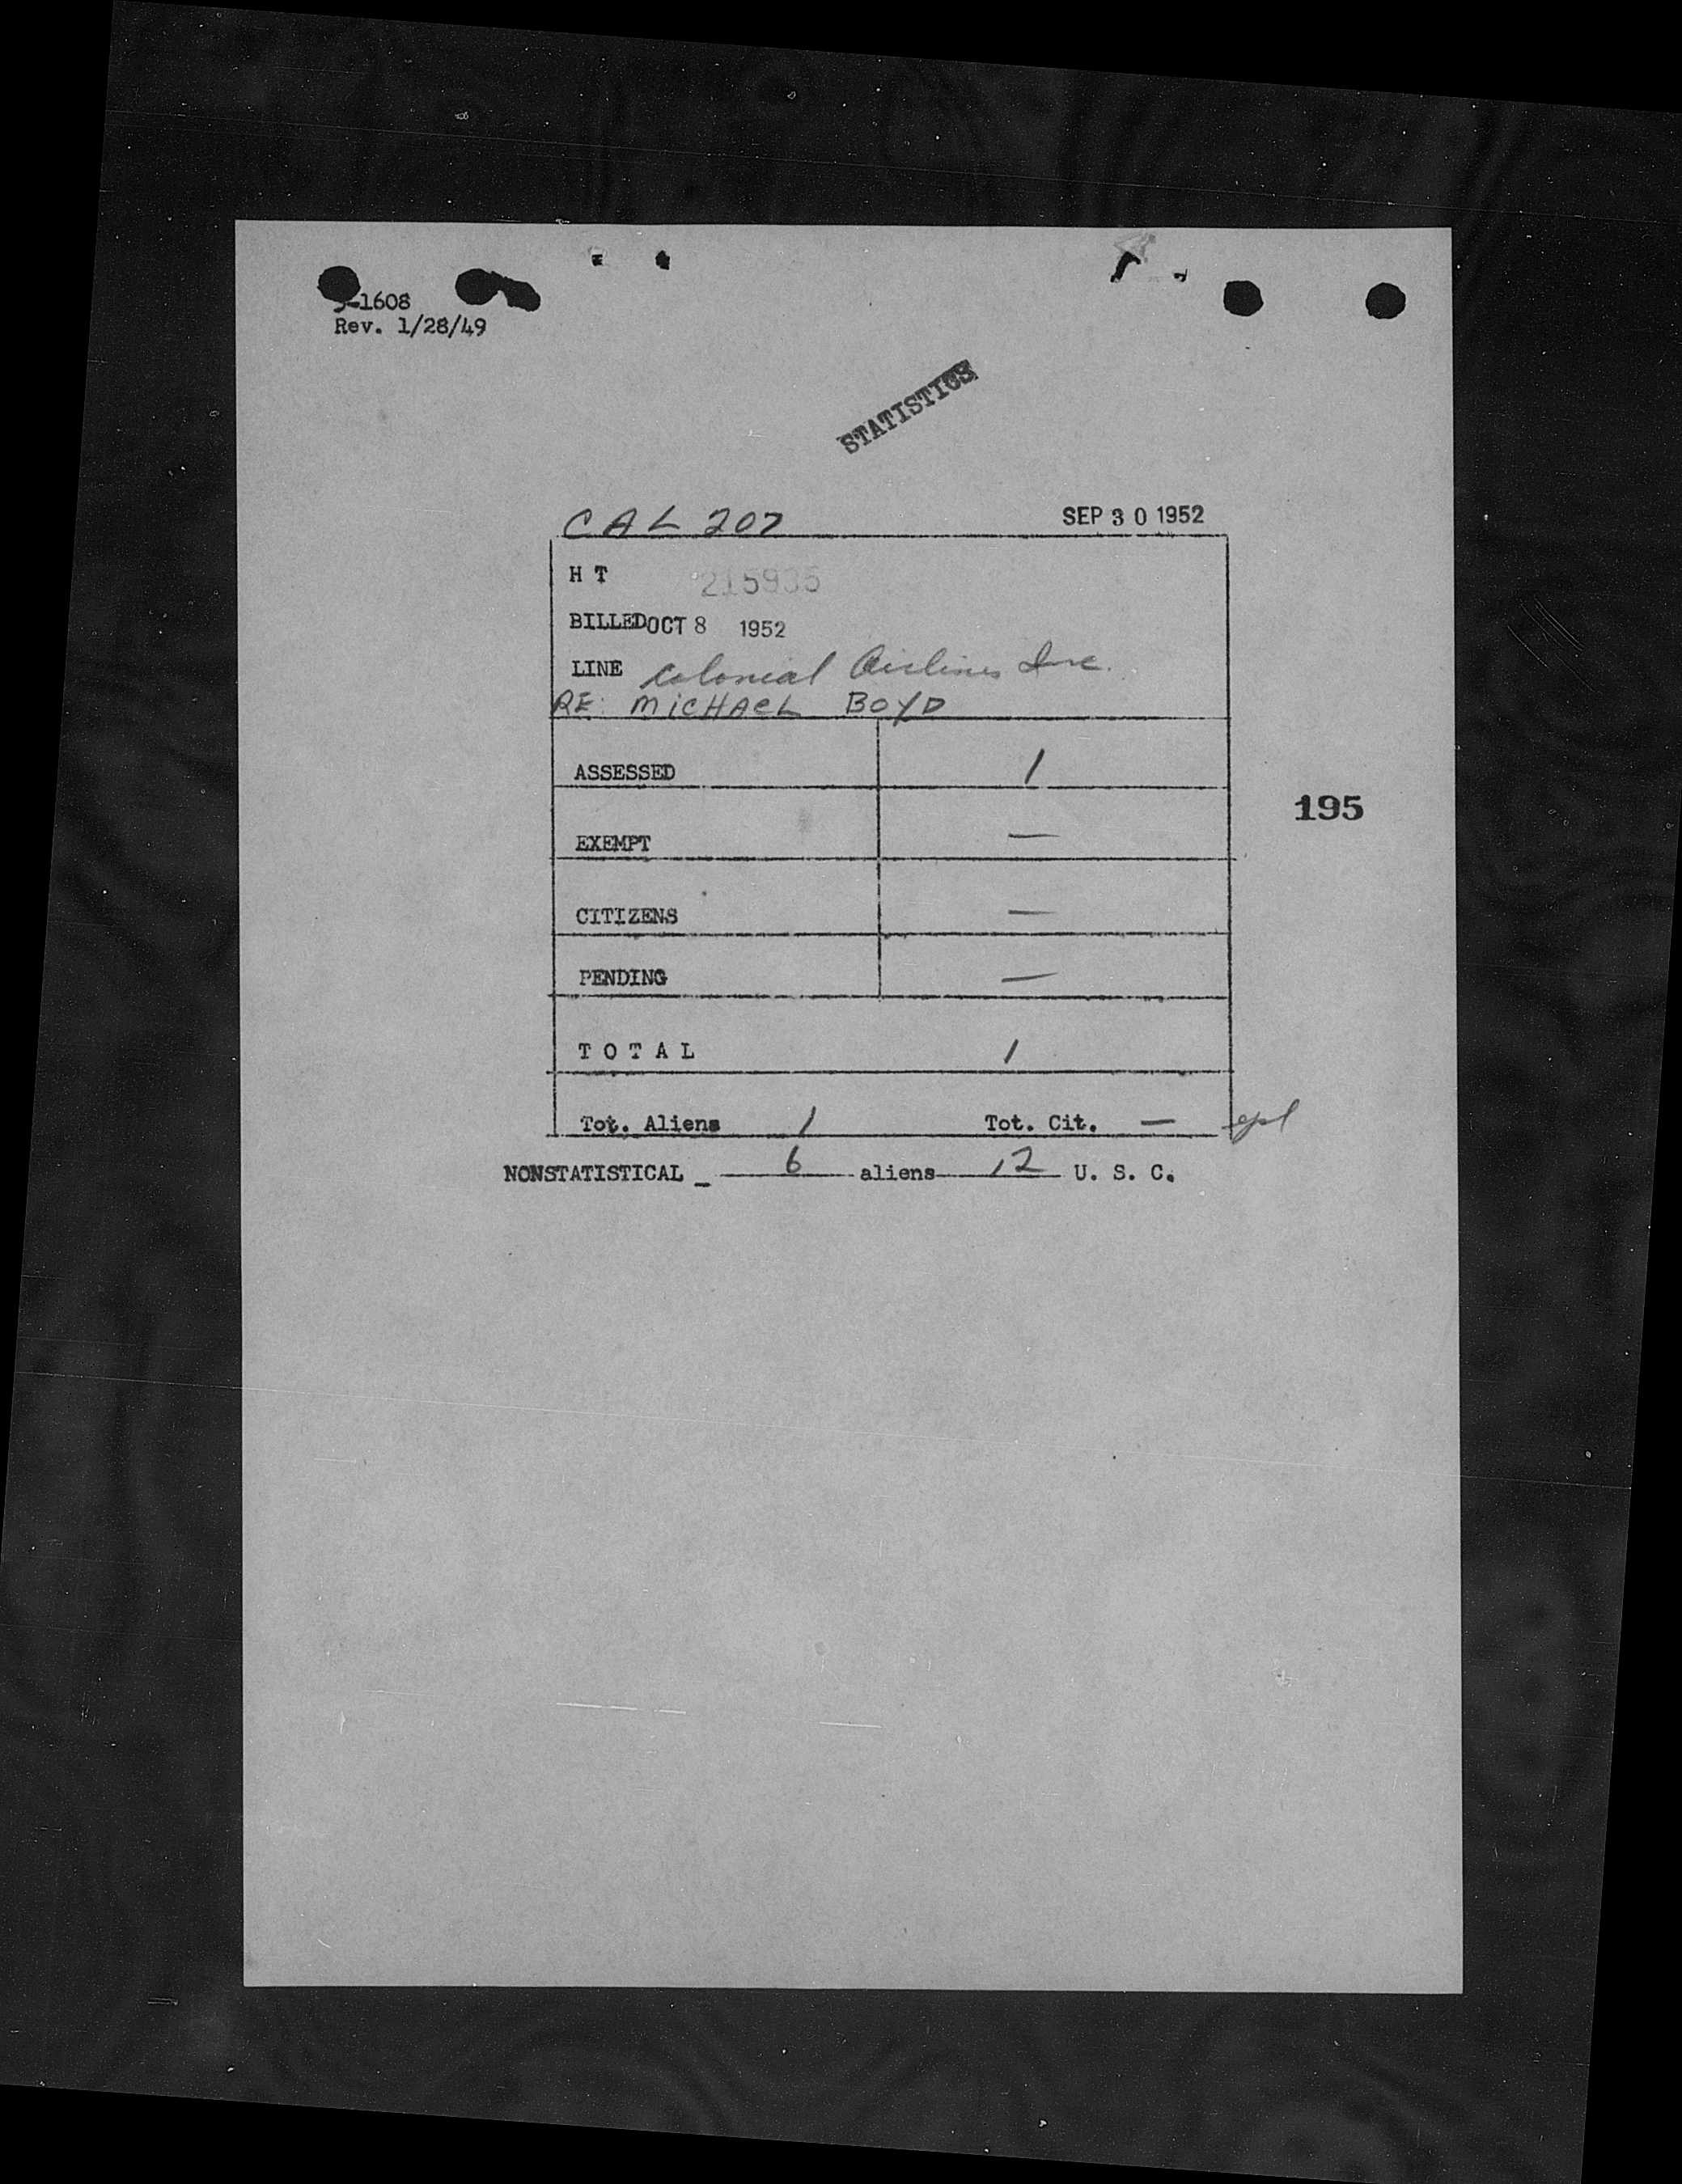 -1608
Rev. 1/28/49
STATISTICS
CAL 207 SEP 30 1952
H T 215935
BILLED OCT 8 1952
LINE Colonial Airlines Inc.
RE: MICHAEL BOYD
ASSESSED 1
195
EXEMPT —
CITIZENS —
PENDING —
T O T A L 1
Tot. Aliens 1 Tot. Cit. —
NONSTATISTICAL _ 6 aliens 12 U. S. C.